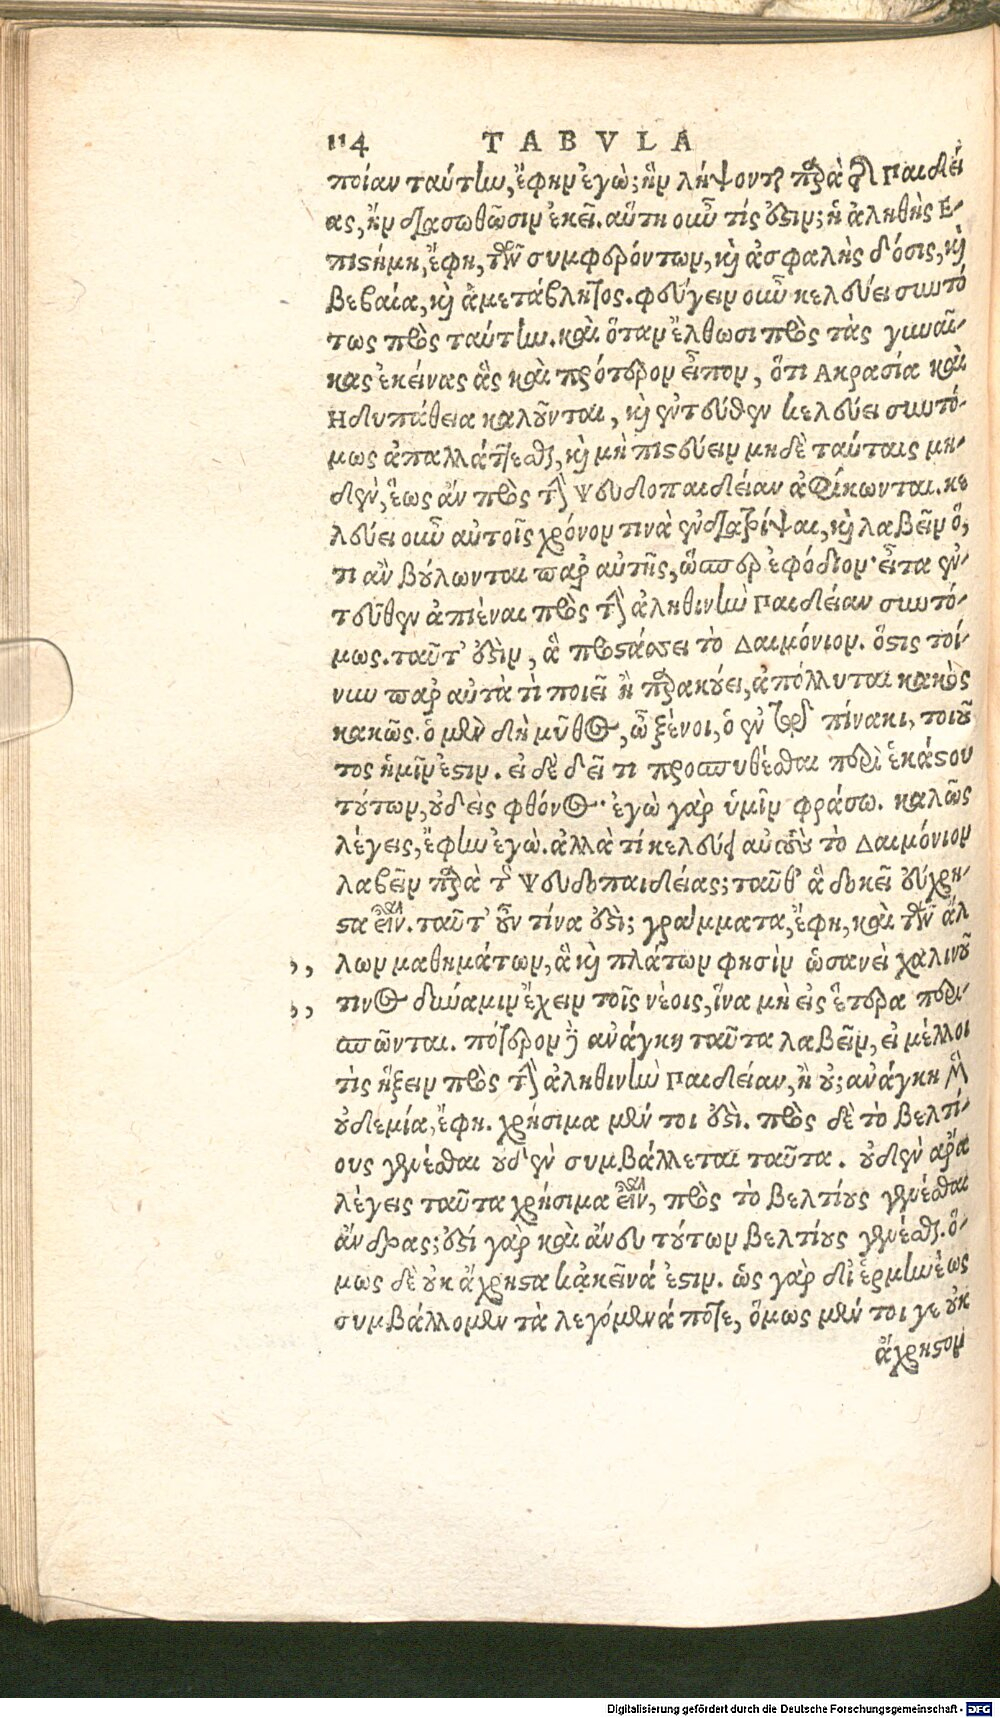 114 TABVLA
ποίαν ταύτην, ἔφην ἐγὼ; ἣν λήψονται παρὰ τῆς Παιδεί
ας, ἣν διασωθῶσιν ἐκεῖ. αὕτη οὖν τίς ἐστιν; ἡ ἀληθὴς Ε-
πιστήμη, ἔφη, τῶν συμφερόντων, καὶ ἀσφαλὴς δόσις, καὶ
βεβαία, καὶ ἀμετάβλητος. φεύγειν οὖν κελεύει συντό
τως πρὸς ταύτην. καὶ ὅταν ἔλθωσι πρὸς τὰς γυναῖ-
κας ἐκείνας ἃς καὶ πρότερον εἶπον, ὅτι Ακρασία καὶ
Ηδυπάθεια καλοῦνται, καὶ ἐντεῦθεν κελεύει συντό-
μως ἀπαλλάττεσθαι, καὶ μὴ πιστεύειν μηδὲ ταύταις μη-
δὲν, ἕως ἂν πρὸς τὴν Ψευδοπαιδείαν ἀφίκωνται. κε
λεύει οὖν αὐτοῖς χρόνον τινὰ ἐνδιατρίψαι, καὶ λαβεῖν ὅ,
τι ἂν βούλωνται παρ αὐτῆς, ὥσπερ ἐφόδιον· εἶτα ἐν-
τεῦθεν ἀπιέναι πρὸς τὴν ἀληθινὴν Παιδείαν συντό-
μως. ταῦτ' ἐστὶν, ἃ προστάσσει τὸ Δαιμόνιον. ὅστις τοί-
νυν παρ αὐτὰ τὶ ποιεῖ ἢ παρακούει, ἀπόλλυται κακὸς
κακῶς. ὁ μὲν δὴ μῦθος, ὦ ξένοι, ὁ ἐν τῷ πίνακι, τοιοῦ
τος ἡμῖν ἐστιν. εἰ δὲ δεῖ τι προσπυθέσθαι περὶ ἑκάστου
τούτων, οὐδεὶς φθόνος· ἐγὼ γὰρ ὑμῖν φράσω. καλῶς
λέγεις, ἔφην ἐγὼ. ἀλλὰ τί κελεύει αὐτοὺς τὸ Δαιμόνιον
λαβεῖν παρὰ τῆς Ψευδοπαιδείας; ταῦθ' ἃ δοκεῖ εὔχρη-
στα εἶναι. ταῦτ' οὖν τίνα ἐστὶ; γράμματα, ἔφη, καὶ τῶν ἄλ
,, λων μαθημάτων, ἃ καὶ πλάτων φησὶν ὡσανεὶ χαλινοῦ
,, τινος δύναμιν ἔχειν τοῖς νέοις, ἵνα μὴ εἰς ἕτερα περι-
σπῶνται. πότερον δὲ ἀνάγκη ταῦτα λαβεῖν, εἰ μέλλοι
τὶς ἥξειν πρὸς τὴν ἀληθινὴν Παιδείαν, ἢ οὐ; ἀνάγκη μὲν
οὐδεμία, ἔφη. χρήσιμα μέν τοι ἐστὶ. πρὸς δὲ τὸ βελτί-
ους γενέσθαι οὐδ' ἓν συμβάλλεται ταῦτα. οὐδὲν ἄρα
λέγεις ταῦτα χρήσιμα εἶναι, πρὸς τὸ βελτίους γενέσθαι
ἄνδρας; ἐστί γὰρ καὶ ἄνευ τούτων βελτίους γενέσθαι. ὅ-
μως δὲ οὐκ ἄχρηστα κἀκεῖνά ἐστιν. ὡς γὰρ δι ἑρμηνέως
συμβάλλομεν τὰ λεγόμενά ποτε, ὅμως μέν τοι γε οὐκ
ἄχρηστον
Digitalisierung gefördert durch die Deutsche Forschungsgemeinschaft - DFG